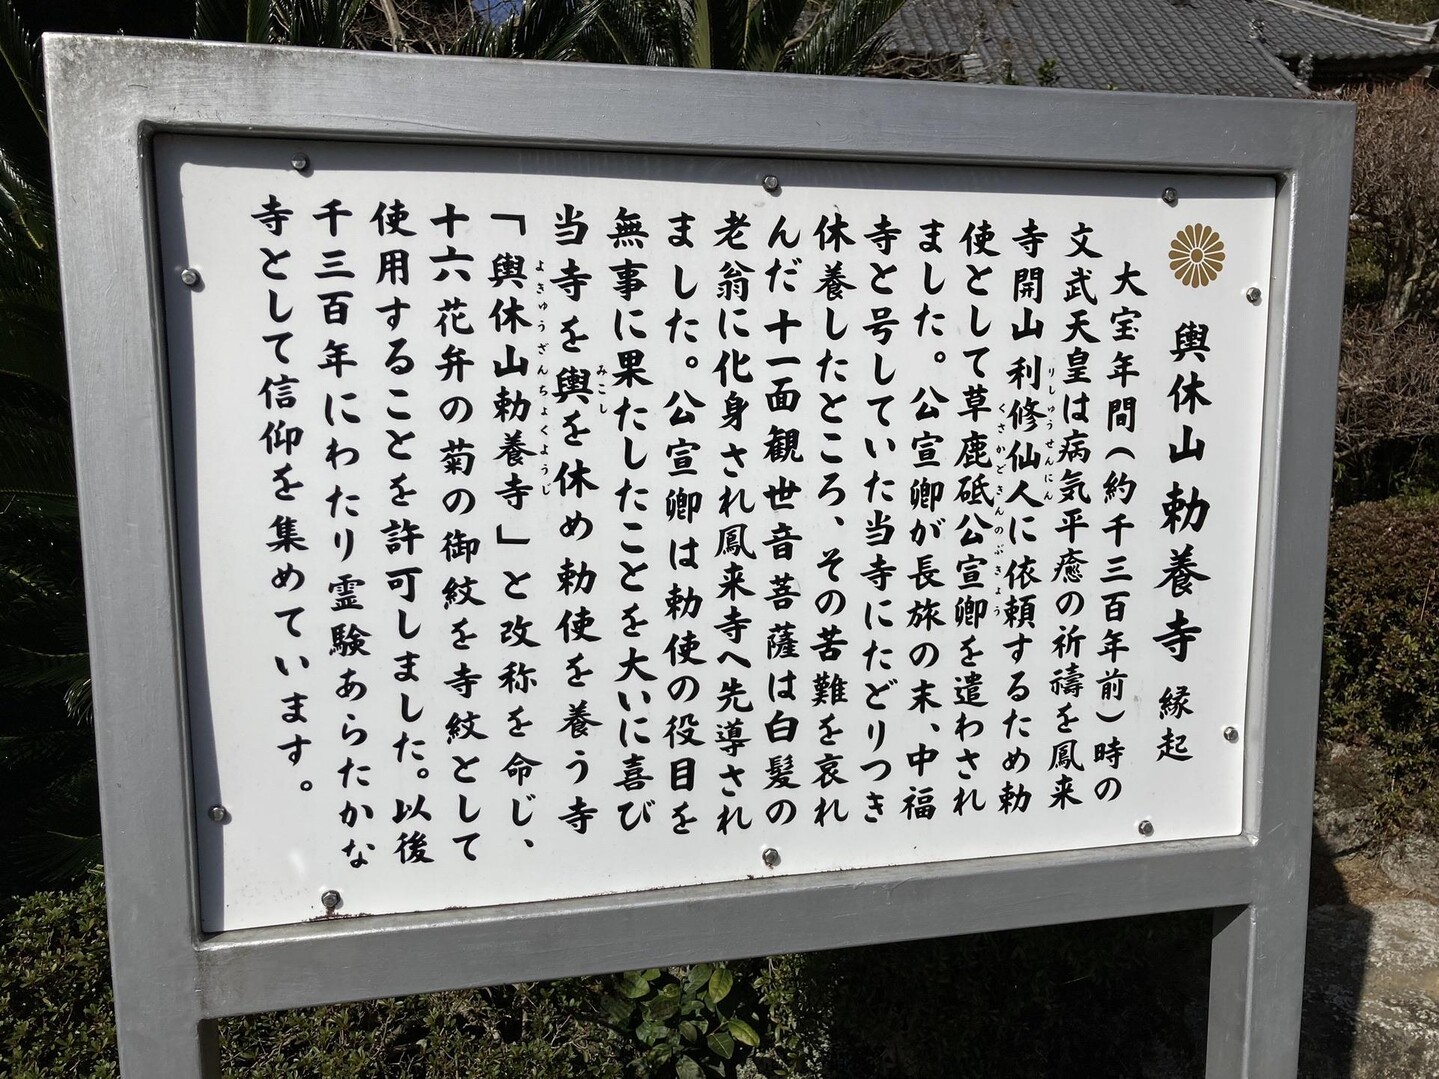 輿休山勅養寺 縁起
大宝年間(約千三百年前)時の
文武天皇は病気平癒の祈禱を鳳来
寺開山利修仙人に依頼するため勅
りしゅうせんにん
使として草鹿砥公宣卿を遣わされ
くさかどきんのぶきょう
ました。公宣卿が長旅の末、中福
寺と号していた当寺にたどりつき
休養したところ、その苦難を哀れ
んだ十一面観世音菩薩は白髪の
老翁に化身され鳳来寺へ先導され
ました。公宣卿は勅使の役目を
無事に果たしたことを大いに喜び
当寺を輿を休め勅使を養う寺
みこし
「輿休山勅養寺」と改称を命じ、
よきゅうざんちょくようじ
十六花弁の菊の御紋を寺紋として
使用することを許可しました。以後
千三百年にわたり霊験あらたかな
寺として信仰を集めています。